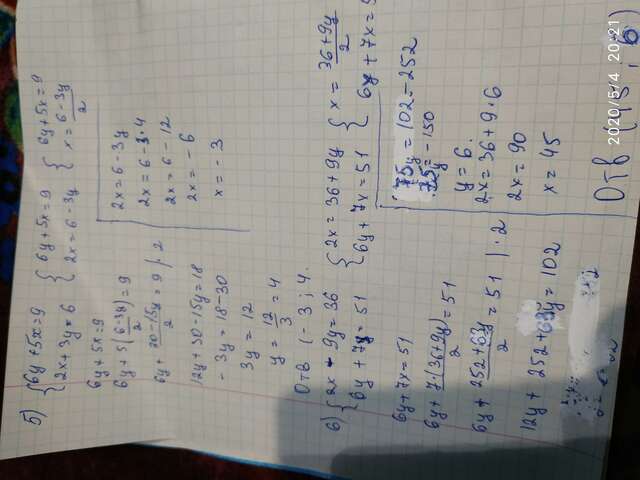 5) { 6y + 5x = 9
{ 2x + 3y = 6
{ 6y + 5x = 9
{ 2x = 6 - 3y
{ 6y + 5x = 9
{ x = 6 - 3y / 2
6y + 5x = 9
6y + 5 (6 - 3y) / 2 = 9
6y + 30 - 15y / 2 = 9 | · 2
12y + 30 - 15y = 18
- 3y = 18 - 30
3y = 12
y = 12 / 3 = 4
2x = 6 - 3y
2x = 6 - 3 · 4
2x = 6 - 12
2x = - 6
x = - 3
Отв (- 3 ; 4.
6) { 2x - 9y = 36
{ 6y + 7x = 51
{ 2x = 36 + 9y
{ 6y + 7x = 51
{ x = 36 + 9y / 2
{ 6y + 7x = 5
6y + 7x = 51
6y + 7 (36 + 9y) / 2 = 51
6y + 252 + 63y / 2 = 51 | · 2
12y + 252 + 63y = 102
75y = 102 - 252
75y = - 150
y = 6
2x = 36 + 9 · 6
2x = 90
x = 45
Отв (45 ; 6)
2020/5/4 20:21